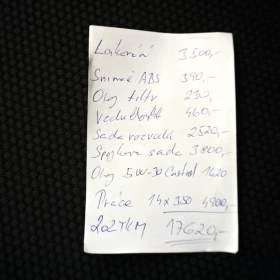 Lakování 3500,-
Snímač ABS 390,-
Olej filtr 230,-
Vzduch 460,-
Sada rozvodů 2520,-
Spojková sada 3800,-
Olej 5W-30 Castrol 1620
Práce 14x350 4900,-
17620,-